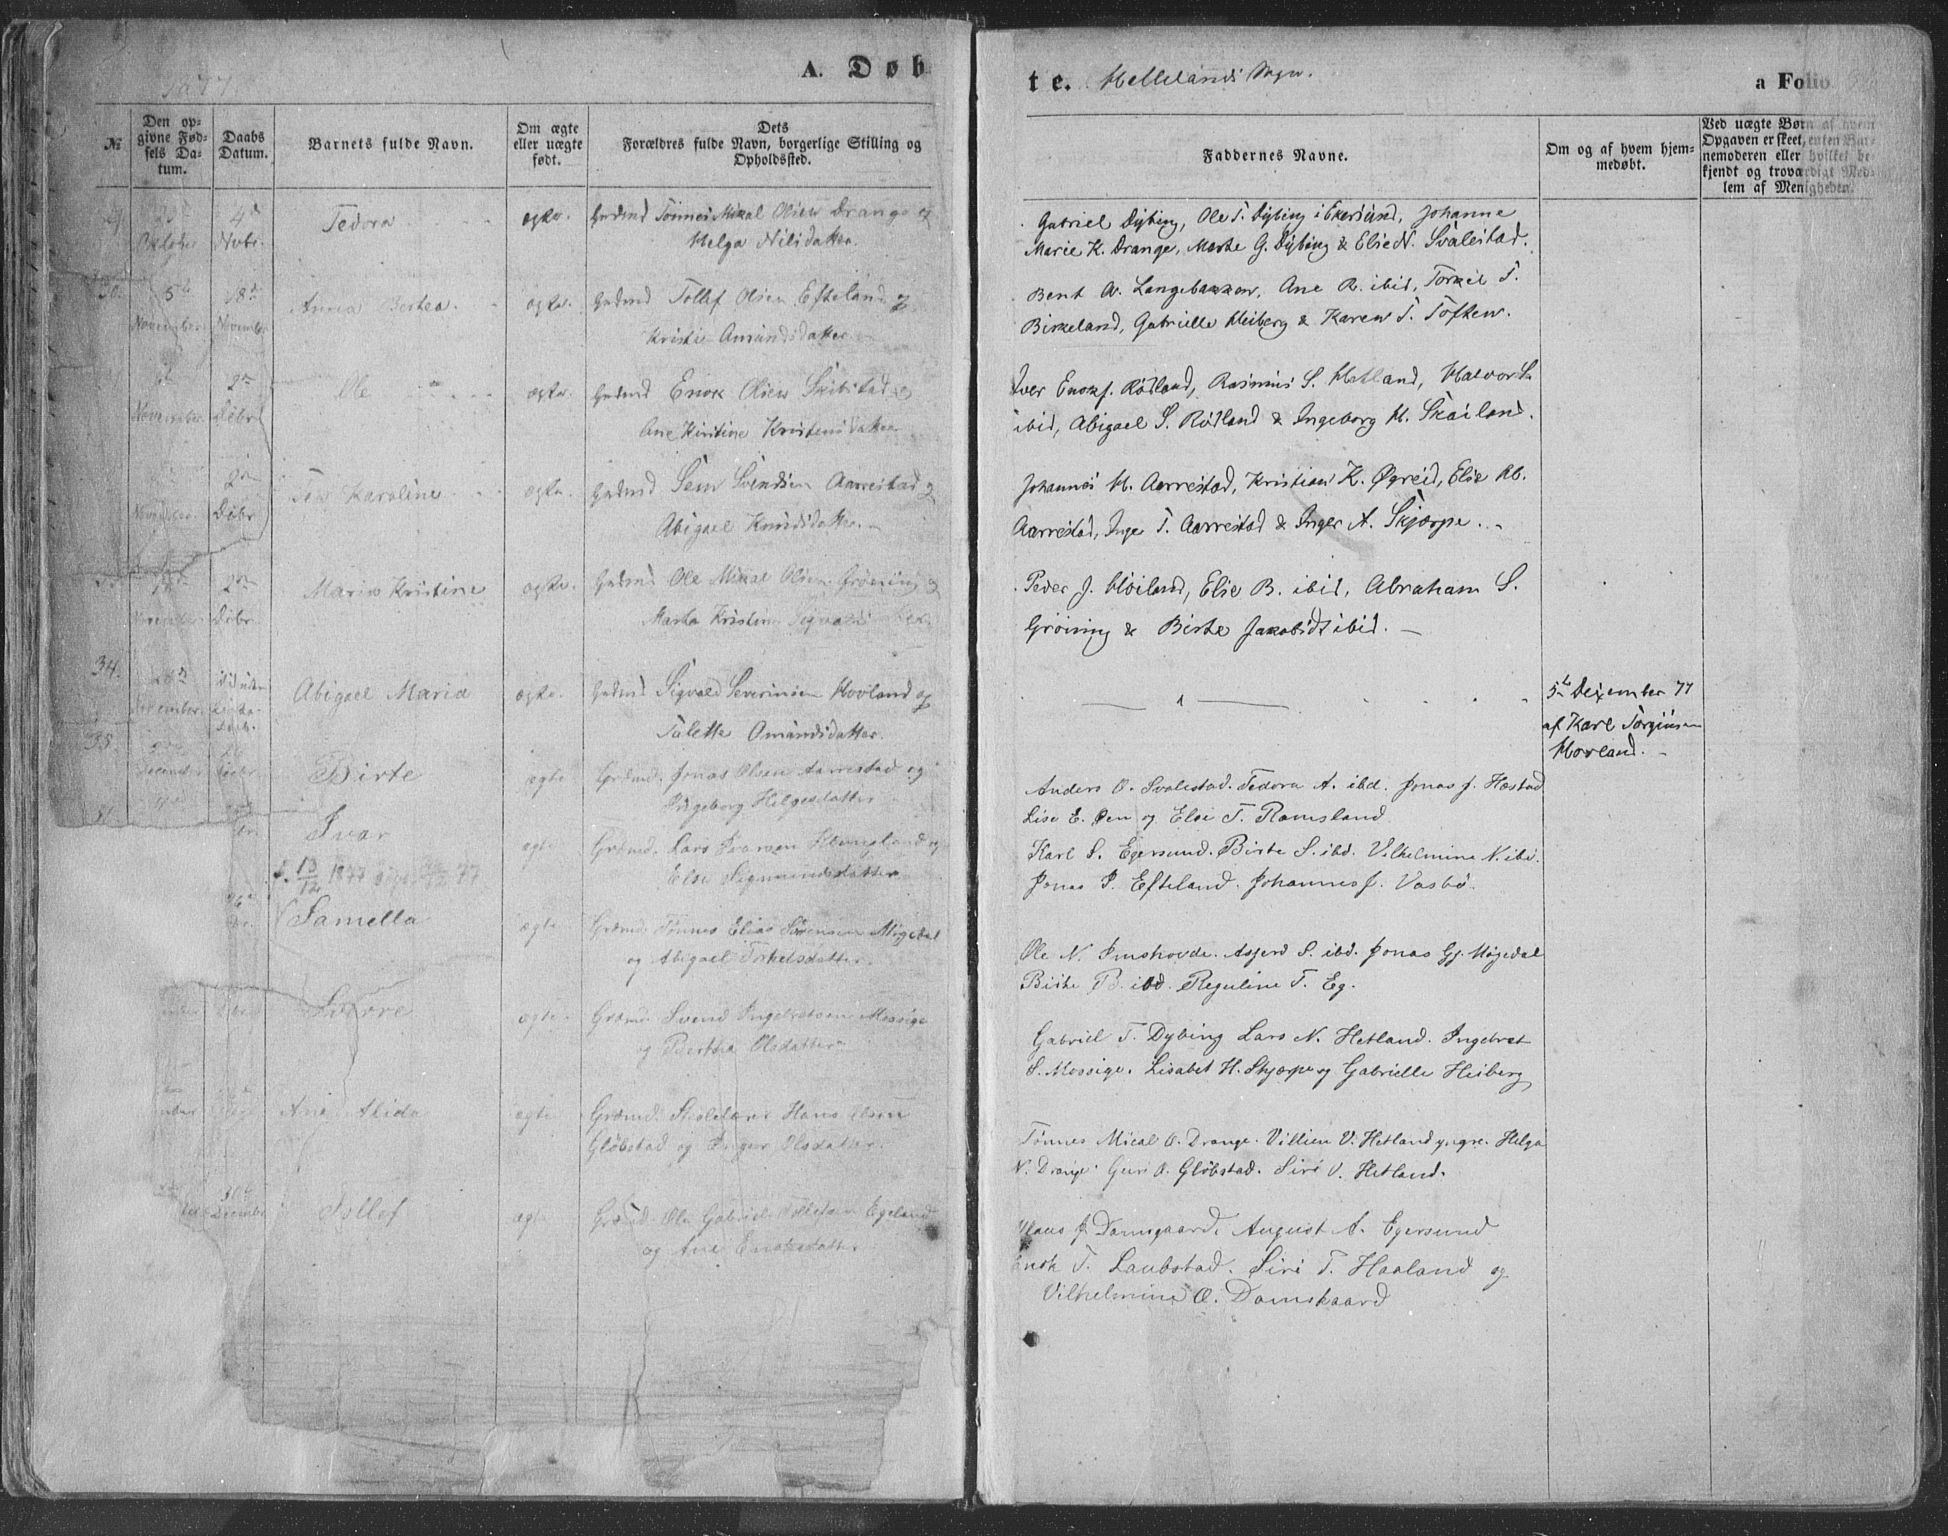 1877
A. Døb
№
Den op-
givne Fød-
sels Da-
tum.
Daabs
Datum.
Barnets fulde Navn.
Om ægte
eller uægte
født.
Dets
Forældres fulde Navn, borgerlige Stilling og
Opholdssted.
4de Tedora ægte. Gaardmd Tönnes Mikal Olsen Drange og
Oktober Novbr. Helga Nilsdatter.
30. 5te 18de Anna Bertea. ægte. Gaardmd Tollef Olsen Efteland og
November November Kristie Amundsdatter
2den Ole ægte. Gaardmd Enok Olsen Skibstad og
November Debr Ane Kirstine Kristensdatter
2den Karoline ægte. Gaardmd Sem Svendsen Aarrestad og
November Debr Abigael Knudsdatter.
2den Maria Kristine ægte. Gaardmd Ole Mikal Olsen Gröining og
November Debr. Marta Kristin Sigvalds
34. 28de Abigael Maria ægte. Gaardmd Sigvald Severinsen Hovland og
November Tälette Omundsdatter.
35. Birte ægte Grdmd. Jonas Olsen Aarrestad og
Ingeborg Helgesdatter
Ivar ægte Grdmd. Lars Ivarsen Klungland og
f. 13/12 1877 Else Sigmundsdatter
Samella ægte Grdmd. Tönnes Elias Sörensen Mögedal
og Abigael Torkelsdatter.
Sverre ægte Grdmd. Svend Ingebretsen Mossige
og Bertha Olsdatter
Ane Alida ægte Grdmd. Skolelærer Hans Olsen
Glöbstad og Inger Olsdatter.
30te
December Tollef ægte Grdmd. Ole Gabriel Tollefsen Egeland
og Ane Enoksdatter.
te. Hellelands Sogn.
a Folio
Faddernes Navne.
Om og af hvem hjem-
medøbt.
Ved uægte Børn af hvem
Opgaven er skeet, enten Bar-
nemoderen eller hvilket be-
kjendt og troværdigt Med-
lem af Menigheden.
Gabriel Dybing, Ole T. Dybing i Ekersund, Johanne
Marie K. Drange, Marte G. Dybing & Else N. Svalestad.
Bent A. Langebakken, Ane R. ibid, Torkel T.
Birkeland, Gabrielle Heiberg & Karen T. Toften.
Iver Enoks. Rödland, Rasmus S. Hetland, Halvor S.
ibid, Abigael S. Rödland & Ingeborg H. Skailand.
Johannes H. Aarrestad, Kristian K. Øgreid, Else Ab.
Aarrestad, Inge T. Aarrestad & Inger A. Skjærpe.
Peder J. Höiland, Else B. ibid, Abraham S.
Gröining & Birte Jakobsdt ibid.
5te December 77
af Karl Torgiusen
Hovland.
Anders O. Svalestad. Tedora A. ibd. Jonas J. Hæstad
Lise E. Øen og Else T. Ramsland
Karl S. Egersund. Birte S. ibd. Vilhelmine N. ibd.
Jonas P. Efteland. Johannes J. Vasbö.
Ole N. Imshovde. Asjerd S. ibd. Jonas Gj. Mögedal
Birte B. ibd. Reguline T. Eg.
Gabriel T. Dybing Lars N. Hetland. Ingebret
S. Mossige. Lisabet H. Skjærpe og Gabrielle Heiberg
Tönnes Mical O. Drange. Villien V. Hetland yngre. Helga
N. Drange. Guri O. Glöbstad. Siri V. Hetland.
Klaus J. Damsgaard. August A. Egersund
Enok T. Laubstad. Siri T. Haaland og
Vilhelmine O. Damskaard